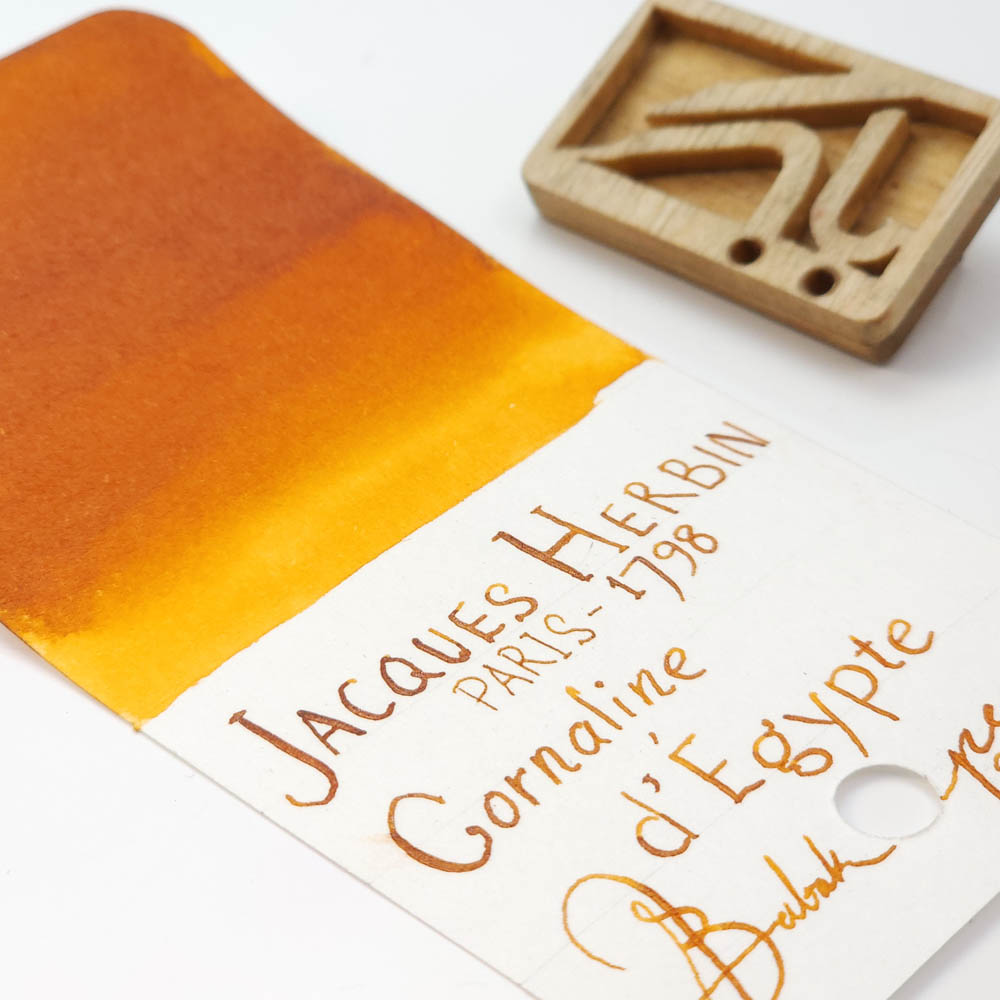 JACQUES HERBIN
PARIS - 1798
Cornaline
d'Egypte
Babak